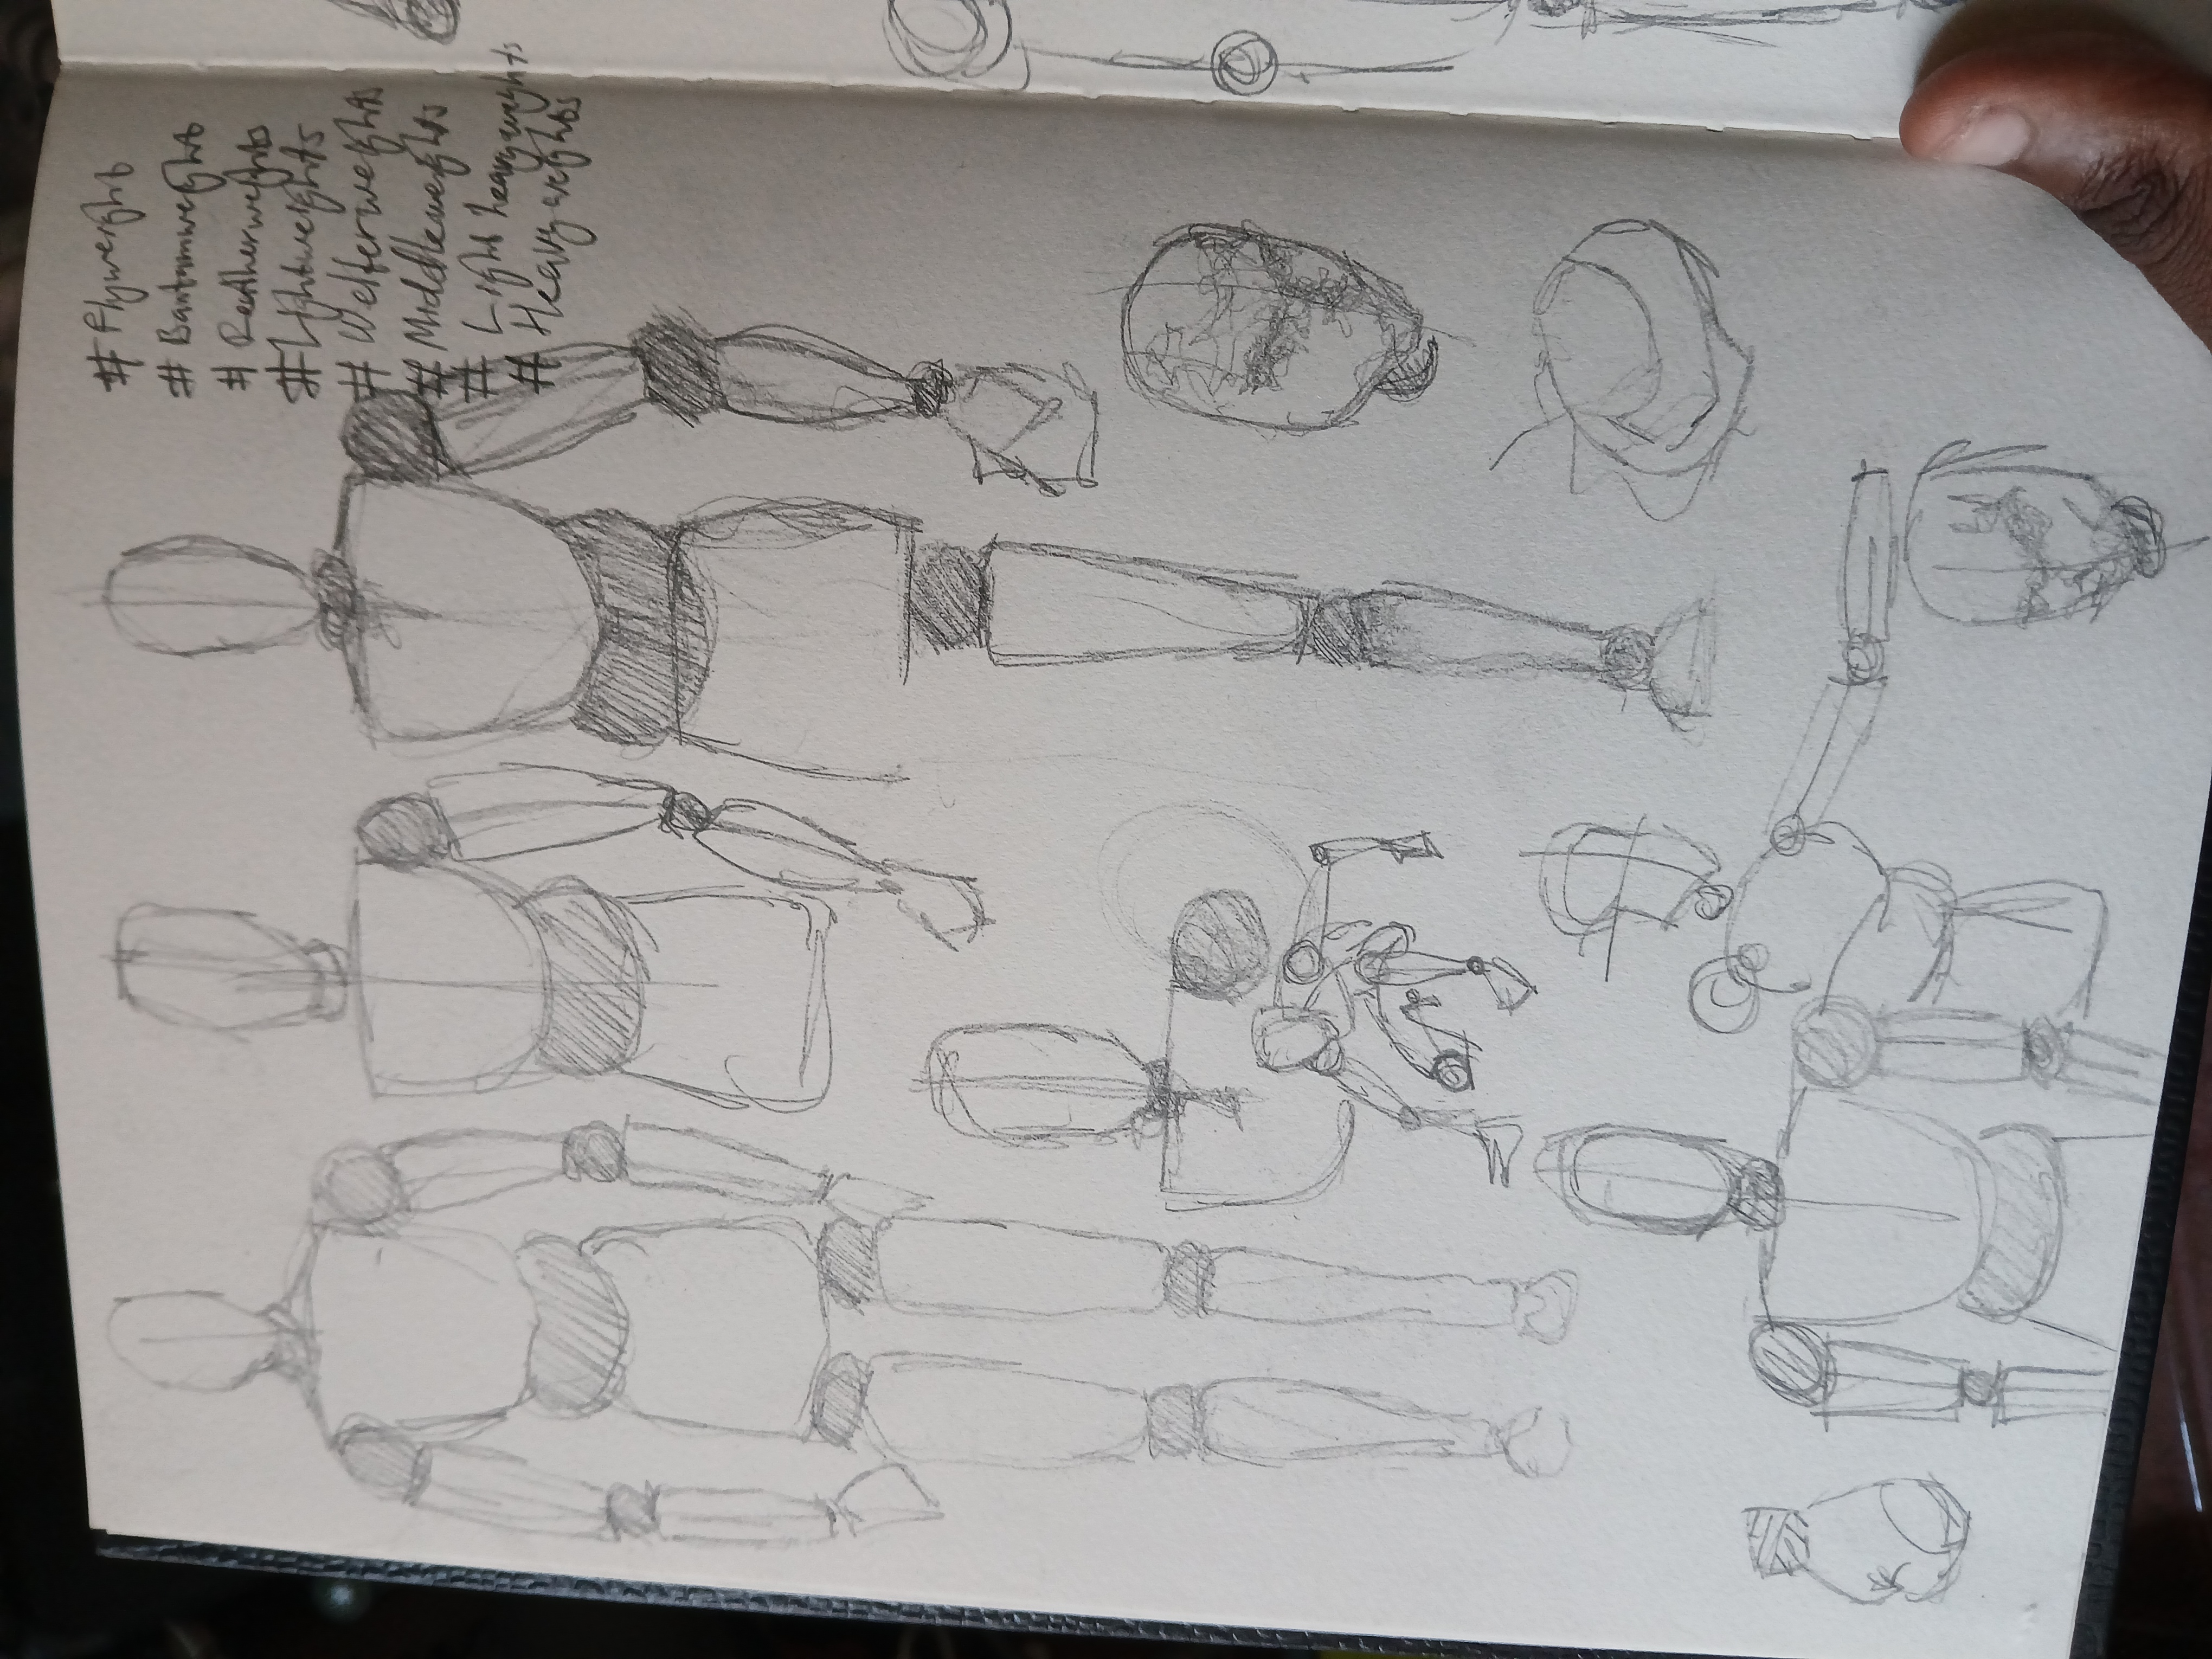 # Flyweight
# Bantamweight
# Featherweights
# Lightweights
# Welterweights
# Middleweights
# Light heavyweights
# Heavyweights